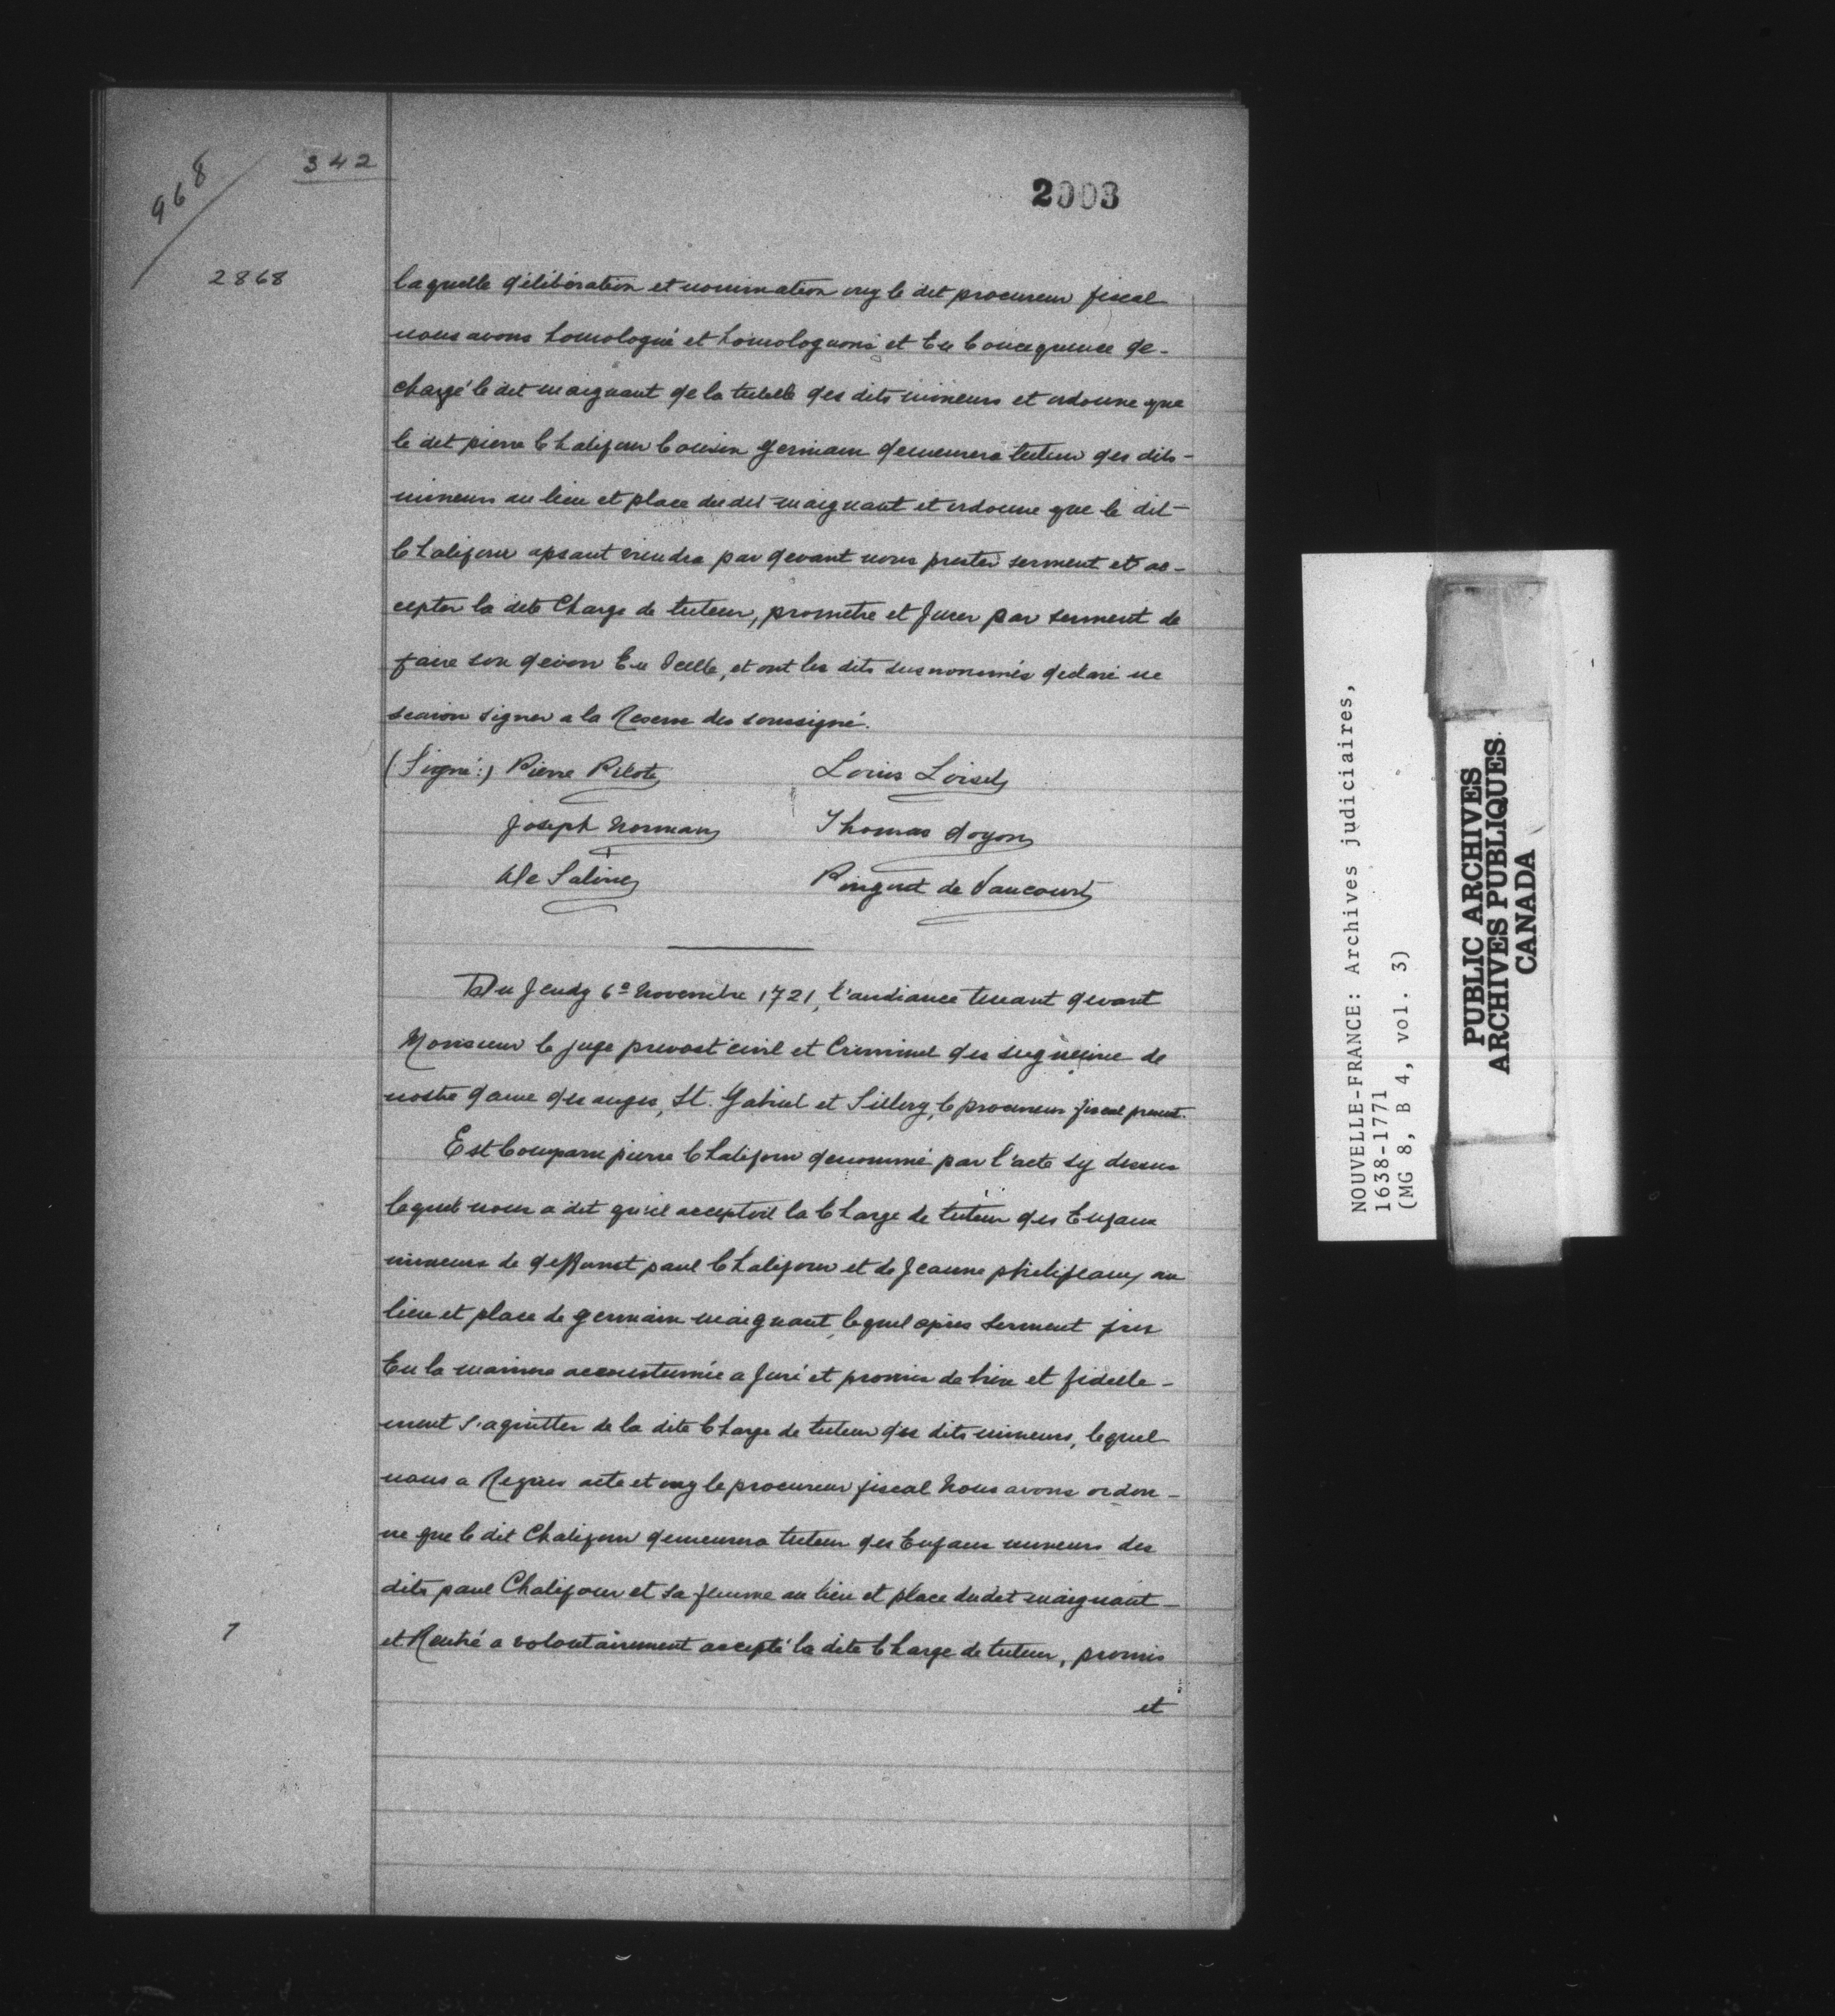 968
342
2003
2868
laquelle délibération et nomination ouy le dit procureur fiscal
nous avons homologué et homologuons et En Concequence de-
chargé le dit maignant de la tutelle des dits mineurs et ordonne que
le dit pierre Chalifour Cousin germain demeurera tuteur des dits-
mineurs au lieu et place du dit maignant et ordonne que le dit-
Chalifour apsant viendra par devant nous prester serment et ac-
cepter la dite Charge de tuteur, prometre et Jurer par serment de
faire son devoir En Icelle, et ont les dits susnommés declaré ne
scavoir signer a la Reserve des soussigné.
(Signé:) Pierre Pilote Louis Loisel
Joseph Norman Thomas doyon
de Saline Ringuet de Vaucourt
Du Jeudy 6e Novembre 1721, l'audiance tenant devant
Monsieur le juge prevost civil et Criminel des seigneurie de
nostre dame des anges, St. Gabriel et Sillery, le procureur fiscal present.
Est Comparu pierre Chalifour denommé par l'acte sy dessus
lequel nous a dit qu'il acceptoit la Charge de tuteur des Enfans
mineurs de deffunct paul Chalifour et de Jeanne philipeaux au
lieu et place de germain maignant, lequel apres serment pris
En la maniere accoustumée a Juré et promis de bien et fidelle-
ment s'aquitter de la dite Charge de tuteur des dits mineurs, lequel
nous a Requis acte et ouy le procureur fiscal Nous avons ordon-
né que le dit Chalifour demeurera tuteur des Enfans mineurs des
dits paul Chalifour et sa femme au lieu et place du dit maignant-
et a volontairement accepté la dite Charge de tuteur, promis
et
NOUVELLE-FRANCE: Archives judiciaires,
1638-1771
(MG 8, B 4, vol. 3)
PUBLIC ARCHIVES
ARCHIVES PUBLIQUES
CANADA